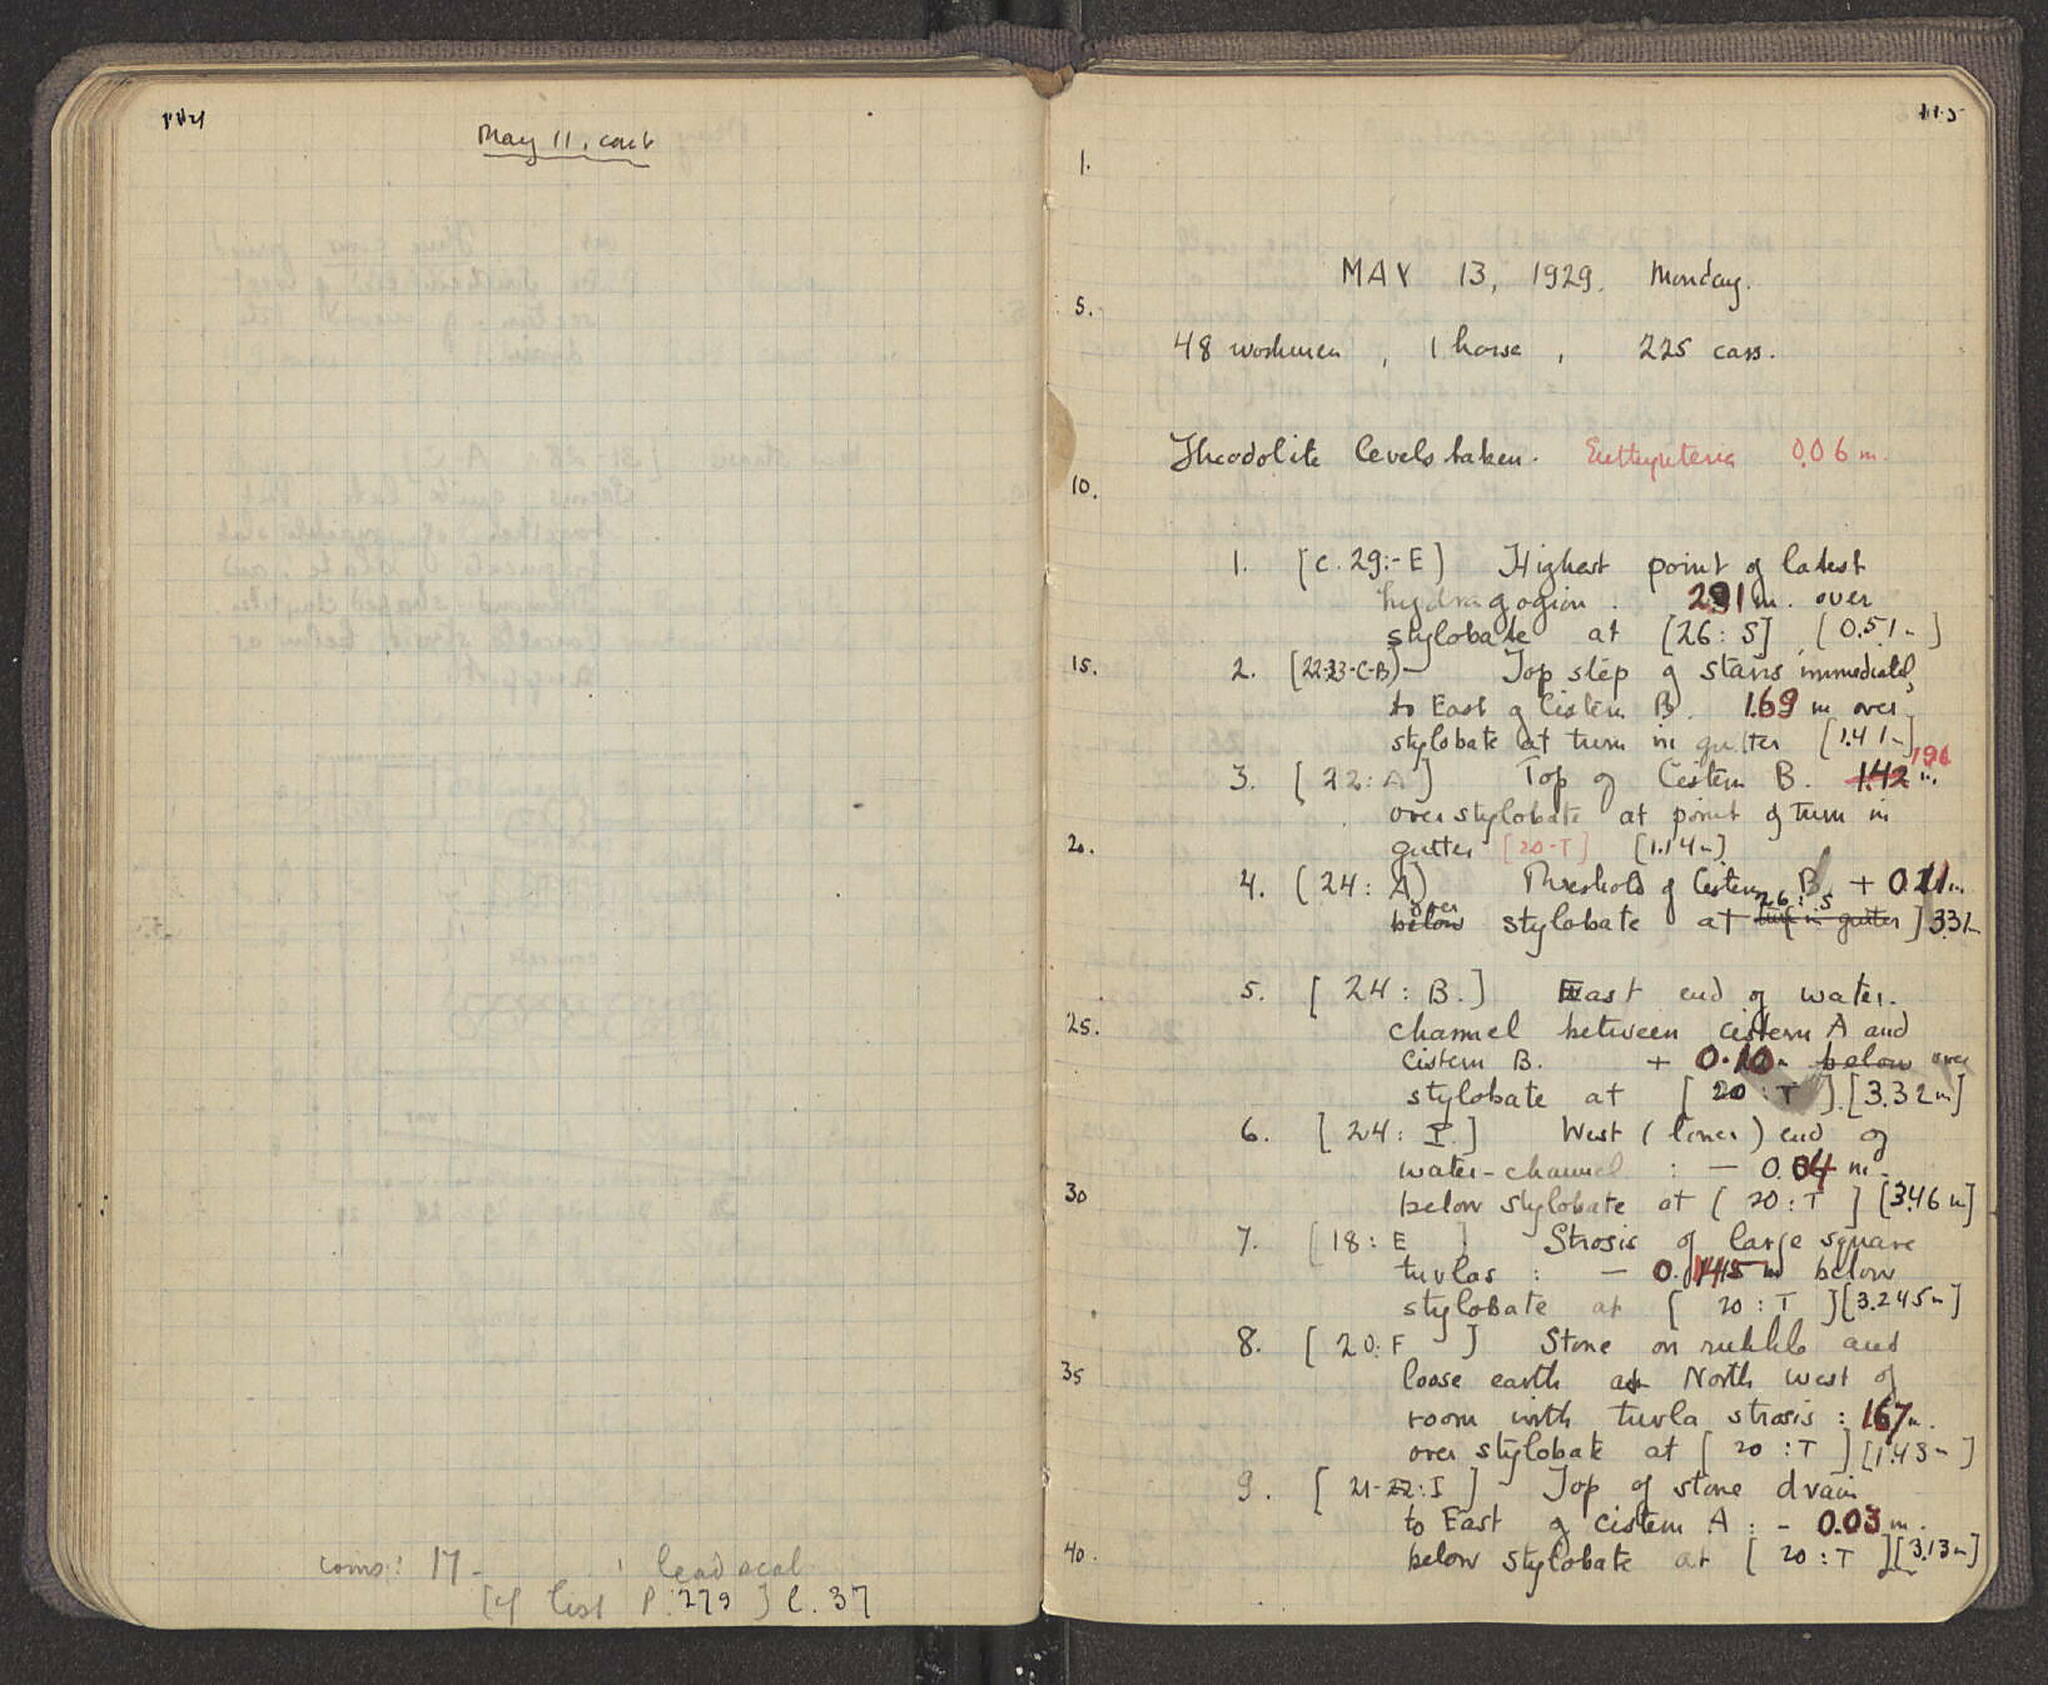 May 11, cont
coins: 17 - 1 lead seal
[cf list P. 279] l. 37
115
1.
MAY 13, 1929. Monday.
5.
48 workmen, 1 horse, 225 cars.
Theodolite levels taken. Euthynteria 0.06 m.
10.
1. [c. 29:-E] Highest point of latest
hydragogion. 2.91 m. over
stylobate at [26: S] [0.51 m]
15.
2. [22-23-C-B] - Top step of stairs immediately
to East of Cistern B. 1.69 m over
stylobate at turn in gutter [1.41 m]
3. [22: A] Top of Cistern B. 1.42 m.
over stylobate at point of turn in
20.
gutter [20-T] [1.14 m]
4. (24: A) Threshold of Cistern B. + 0.11 m
below over stylobate at turn in gutter 26:S] 3.31 m
5. [24: B.] East end of water-
25.
channel between cistern A and
cistern B. + 0.10 m below over
stylobate at [20: T]. [3.32 m]
6. [24: I.] West (lower) end of
water-channel : - 0.04 m.
30
below stylobate at [20: T] [3.46 m]
7. [18: E ] Strosis of large square
tuvlas : - 0.145 m below
stylobate at [20: T] [3.245 m]
8. [20: F ] Stone on rubble and
35
loose earth at North west of
room with tuvla strosis : 1.67 m.
over stylobate at [20: T] [1.43 m]
9. [21-22: I ] Top of stone drain
to East of cistern A : - 0.03 m.
40.
below stylobate at [20: T] [3.13 m]